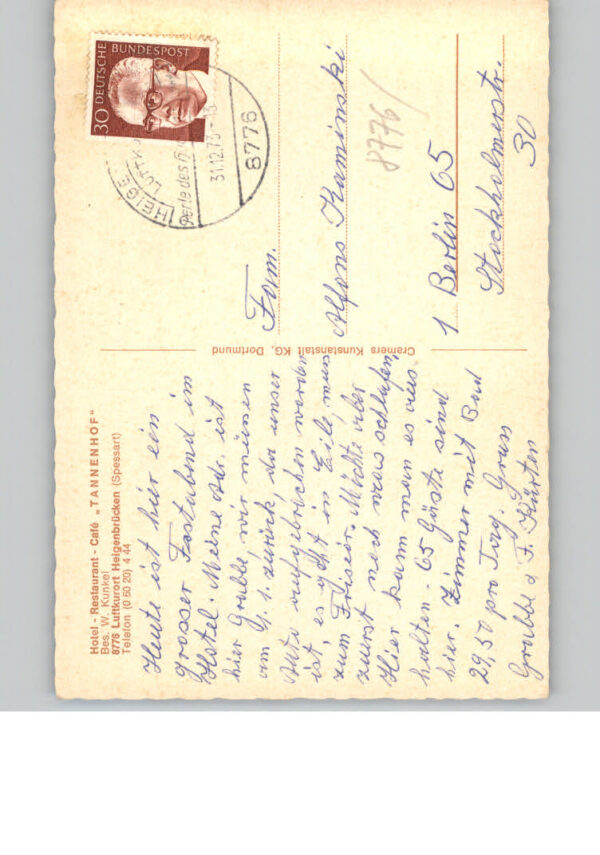 Hotel - Restaurant - Café „TANNENHOF"
Bes. W. Kunkel
8776 Luftkurort Heigenbrücken (Spessart)
Telefon (0 60 20) 4 44
Heute ist hier ein
grosser Festabend im
Hotel. Meine Adr. ist
hier Grabbe, wir müssen
am 4. 1. zurück, da unser
Auto aufgebrochen worden
ist, es geht in Eile, muss
zum Friseur. Möchte aber
zuerst noch was schlafen,
Hier kann man es aus
halten. 65 Gäste sind
hier. Zimmer mit Bad
29,50 pro Tag. Gruss
Grabbe d F. Kürten
Cramers Kunstanstalt KG, Dortmund
30 DEUTSCHE BUNDESPOST
HEIGE
LUFTK
Perle des
31.12.73-18
8776
Fam.
Alfons Kaminski
8776/
1 Berlin 65
Stockholmerstr.
30